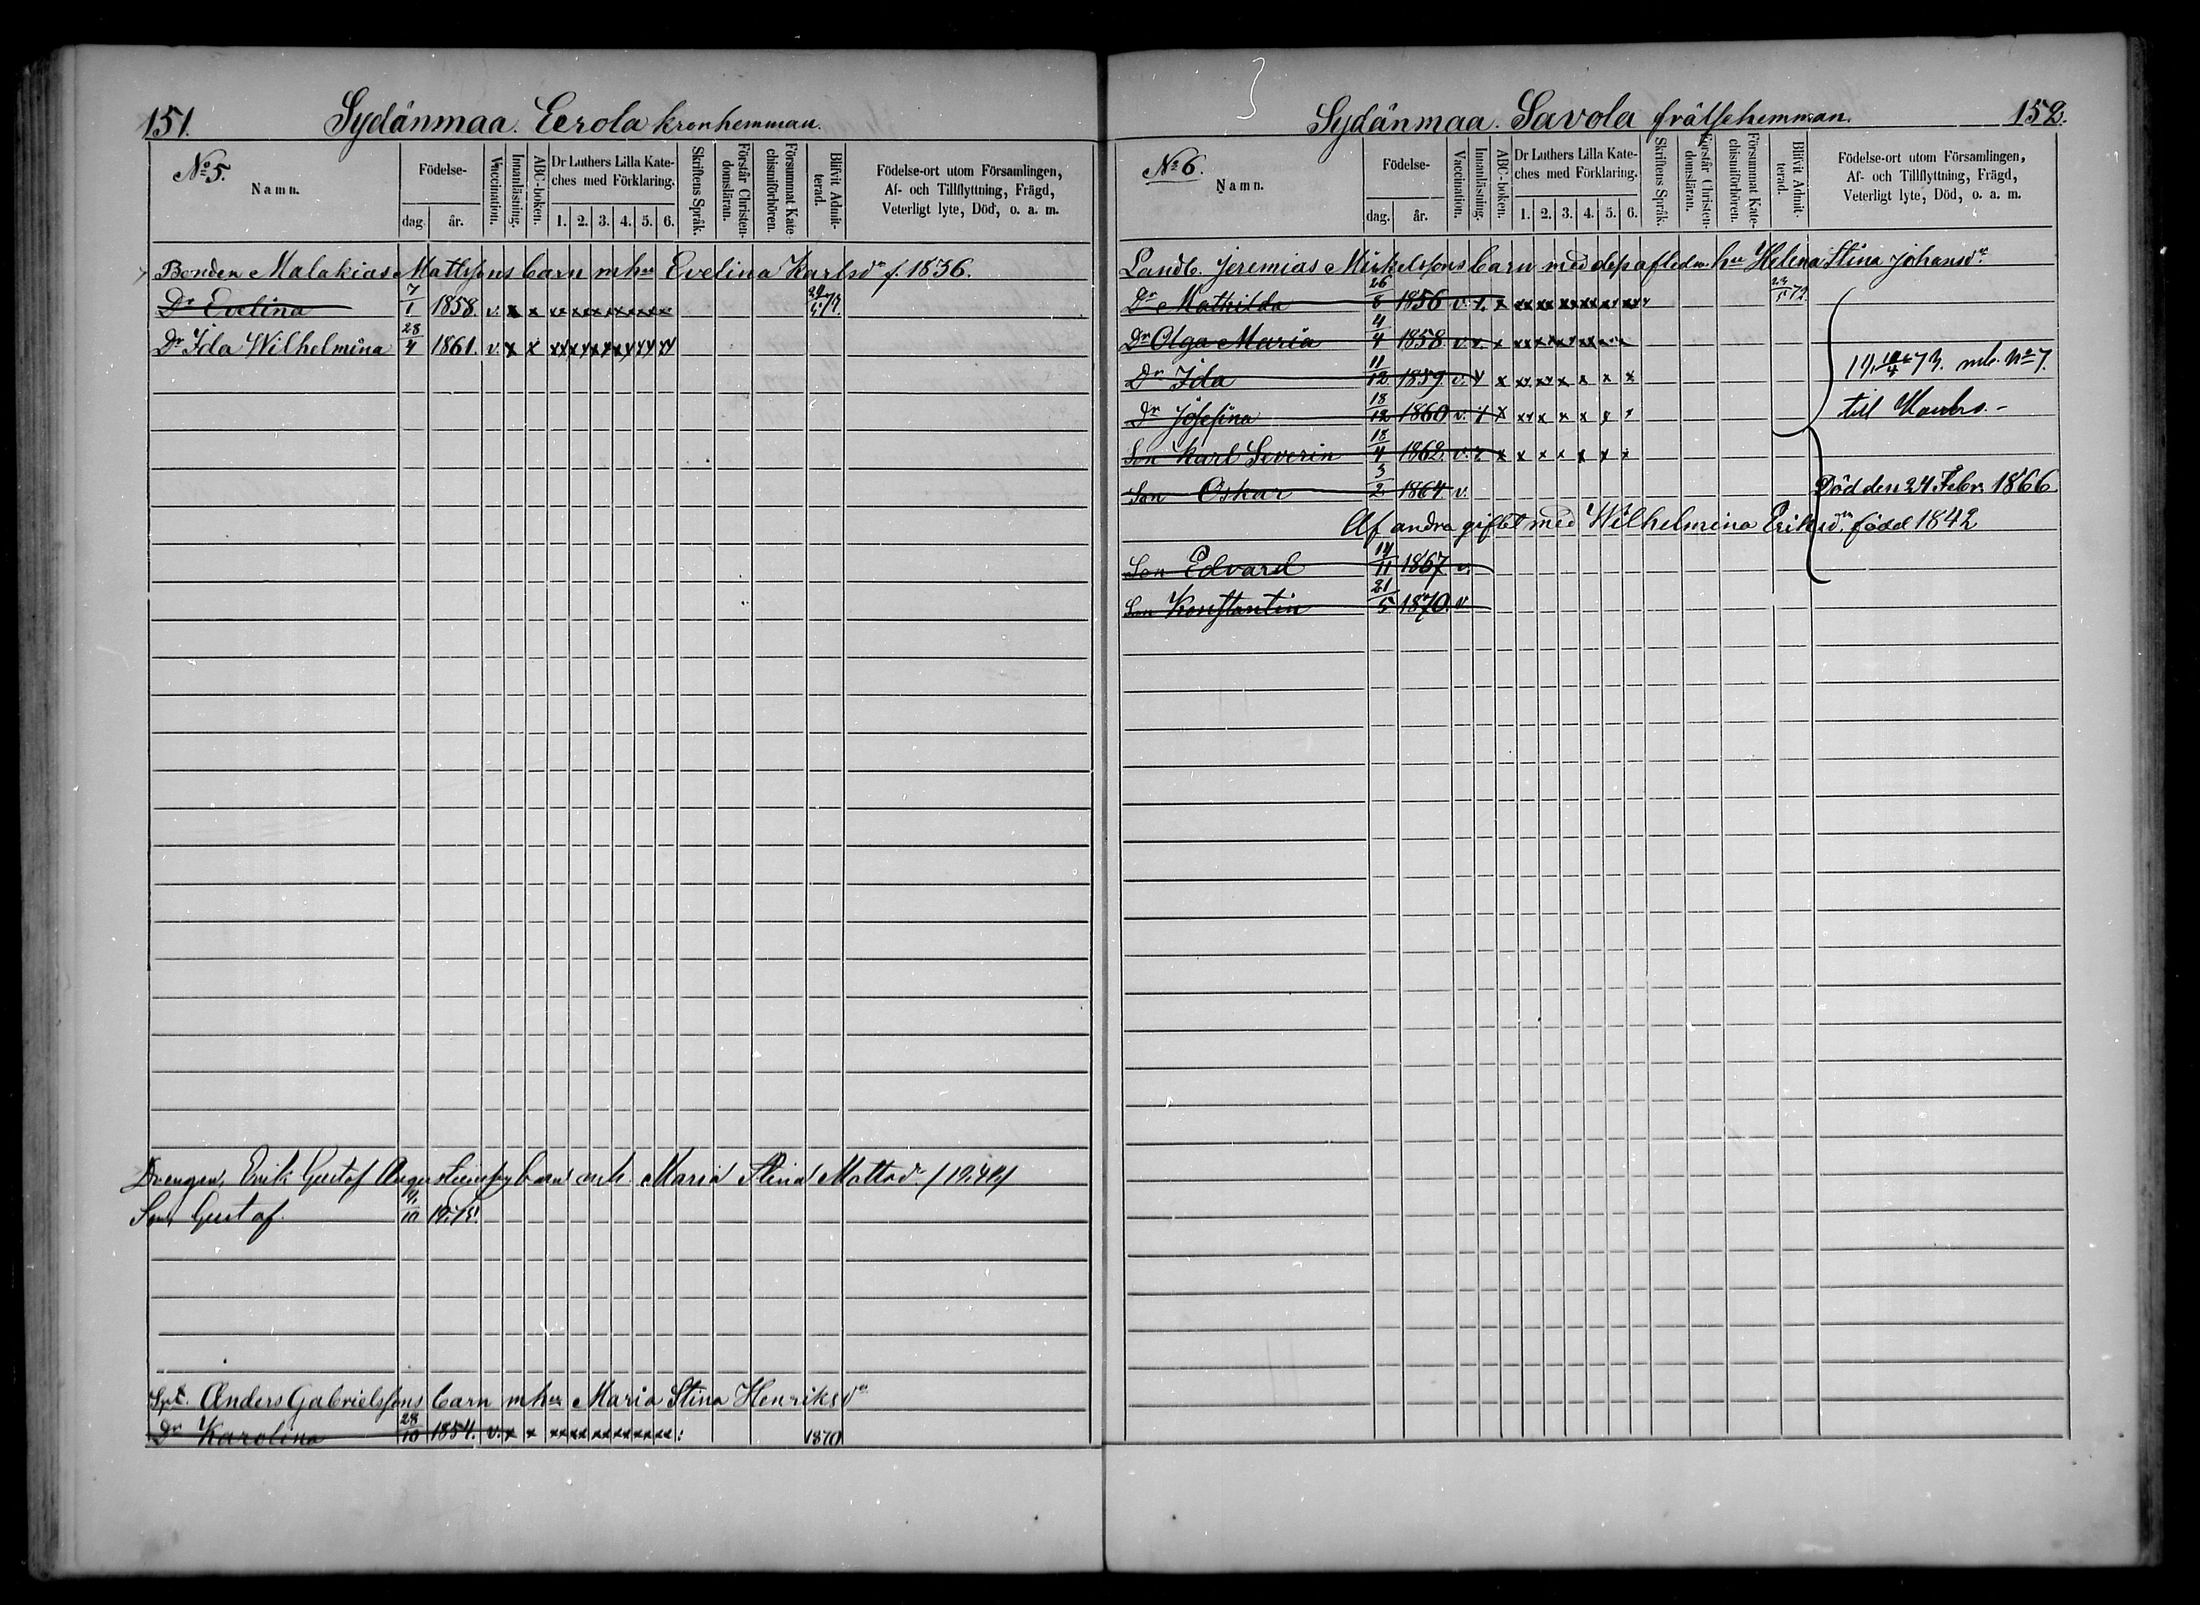 151. Sydänmaa. Eerola kronhemman.
No 5.
Namn.
Födelse-
dag. år.
Vaccination.
Innanläsning.
ABC-boken.
Dr Luthers Lilla Kate-
ches med Förklaring.
1. 2. 3. 4. 5. 6.
Skriftens Språk.
Förstår Christen-
domsläran.
Försummat Kate
chismiförhören.
Blifvit Admit-
terad.
Födelse-ort utom Församlingen,
Af- och Tillflyttning, Frägd,
Veterligt lyte, Död, o. a. m.
Bonden Malakias Mattssons barn m hu Evelina Karlsdr f. 1836.
Dr Evelina 7/1 1858. v. x x xx xx xx xx xx xx
Dr Ida Wilhelmina 28/4 1861. v. x x xx xx xx xx xx xx
Drengen Erik Gustaf barn m h. Maria Stina Mattsdr
Son Gustaf.
Anders Gabrielssons barn m hu Maria Stina Henriksdr
Dr Karolina 28/10 1854. v. x x xx xx xx xx xx xx : 1870
Sydänmaa. Savola frälsehemman. 152.
No 6.
Namn.
Födelse-
dag. år.
Vaccination.
Innanläsning.
ABC-boken.
Dr Luthers Lilla Kate-
ches med Förklaring.
1. 2. 3. 4. 5. 6.
Skriftens Språk.
Förstår Christen-
domsläran.
Försummat Kate-
chismiförhören.
Blifvit Admit-
terad.
Födelse-ort utom Församlingen,
Af- och Tillflyttning, Frägd,
Veterligt lyte, Död, o. a. m.
Landb. Jeremias Mickelssons barn med dess afledna hu Helena Stina Johansdr
Dr Mathilda 26/8 1856 v. x. x xx xx xx xx xx xx
Dr Olga Maria 4/4 1858 v. v. x xx xx xx xx
Dr Ida 11/12 1859. v. x x xx xx x x x x
73. mb. No 7.
Dr Josefina 18/12 1860 v. x x xx x x x x x
till
Son Karl Severin 18/4 1862. v. x x x x x x x x
Son Oskar 3/2 1864 v. Död den 24 Febr. 1866
Af andra giftet med Wilhelmina Eriksdr född 1842
Son Edvard 14/11 1867 v.
Son Konstantin 21/5 1870. v